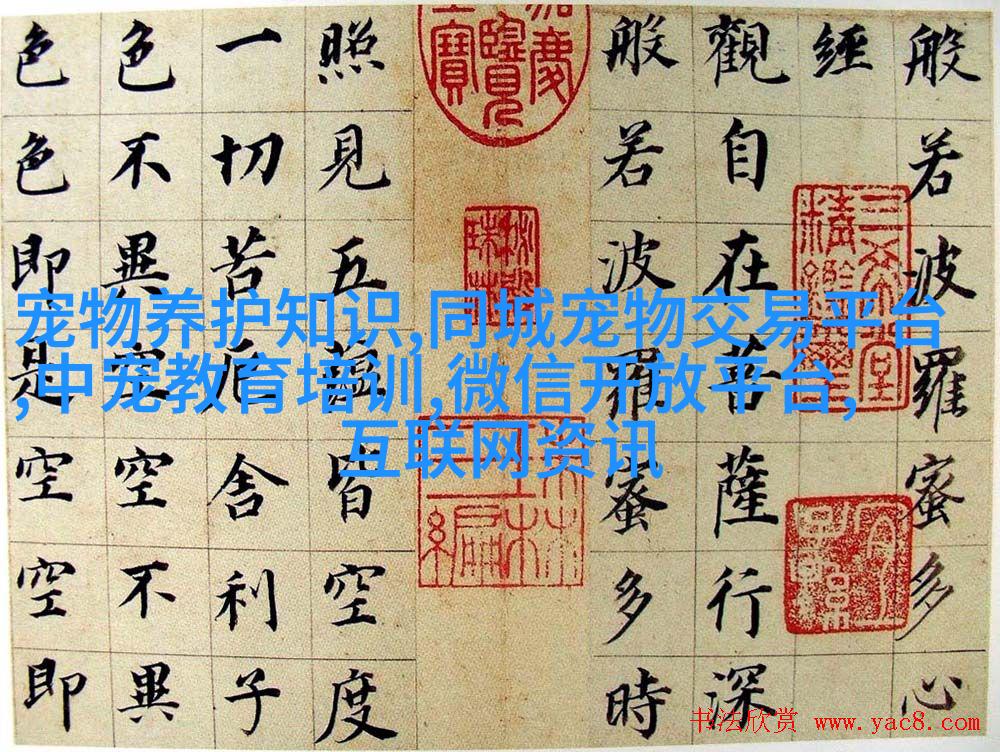 般若波羅蜜多心
經
觀自在菩薩行深
般若波羅蜜多時
照見五蘊皆空度
一切苦厄舍利子
色不異空空不異
色色即是空空即
三希堂精鑑璽
宠物养护知识,同城宠物交易平台
,中宠教育培训,微信开放平台,
互联网资讯
书法欣赏 www.yac8.com